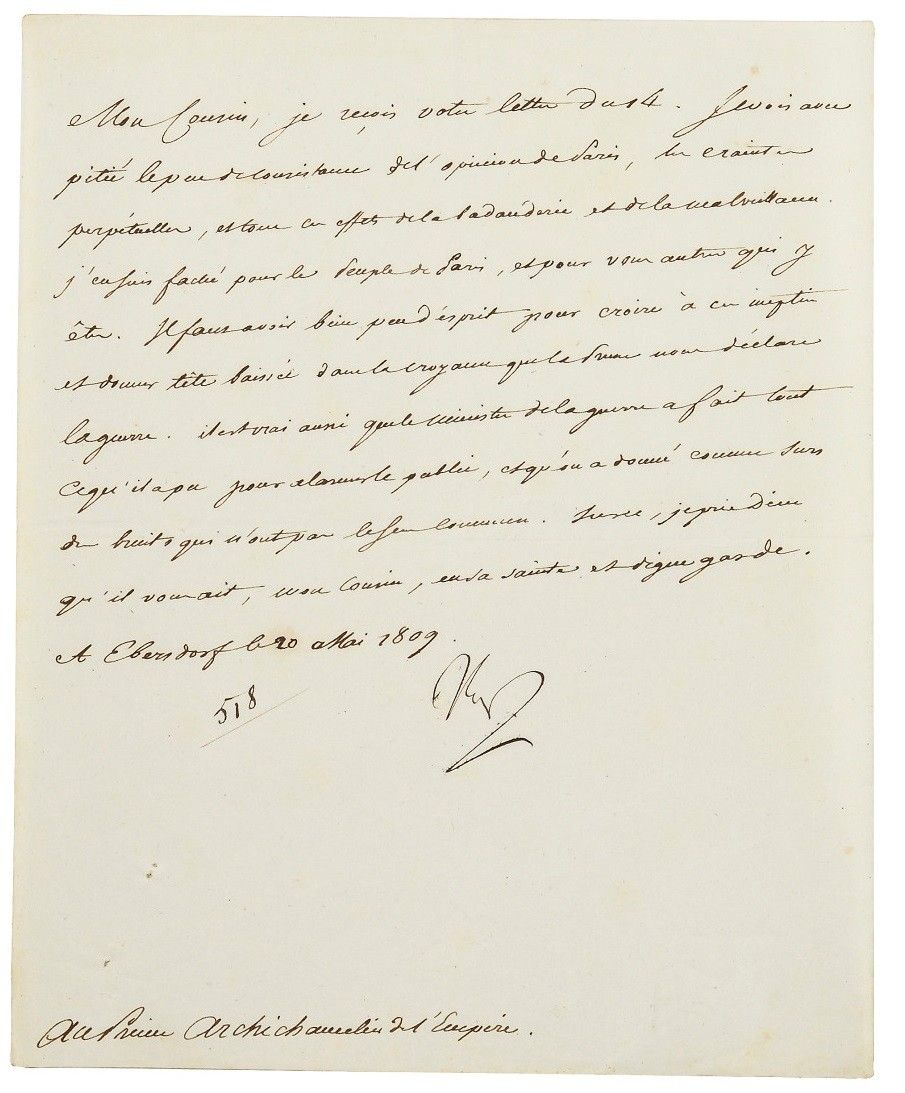 Mon Cousin, je reçois votre lettre du 14. Je vois avec
pitié le peu de consistance de l'opinion de Paris, les craintes
perpétuelles, et tous ces effets de la badauderie et de la malveillance.
j'en suis faché pour le Peuple de Paris, et pour vous autres qui y
êtes. Il faut avoir bien peu d'ésprit pour croire à ces inepties
et donner tête baissée dans la croyance que la Prusse nous déclare
la guerre. il est vrai aussi que le ministre de la guerre a fait tout
ce qu'il a pu pour alarmer le public, et qu'on a donné comme surs
des bruits qui n'ont pas le sens commun. Sur ce, je prie Dieu
qu'il vous ait, mon Cousin, en sa sainte et digne garde.
A Ebersdorf le 20 Mai 1809.
518
Nap
Au Prince Archichancelier de l'Empire.